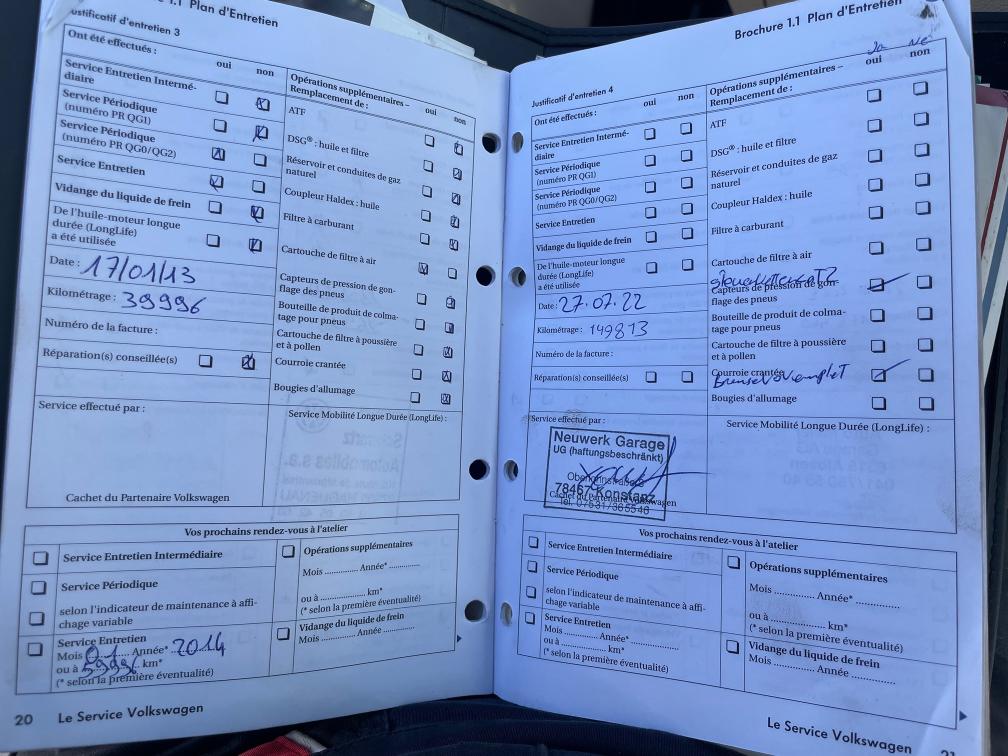 1.1 Plan d'Entretien
Justificatif d'entretien 3
Ont été effectués :
oui non
Service Entretien Intermé-
diaire
Service Périodique
(numéro PR QG1)
Service Périodique
(numéro PR QG0/QG2)
Service Entretien
Vidange du liquide de frein
De l'huile-moteur longue
durée (LongLife)
a été utilisée
Date : 17/01/13
Kilométrage : 39996
Numéro de la facture :
Réparation(s) conseillée(s)
Service effectué par :
Cachet du Partenaire Volkswagen
Opérations supplémentaires –
Remplacement de :
oui non
ATF
DSG® : huile et filtre
Réservoir et conduites de gaz
naturel
Coupleur Haldex : huile
Filtre à carburant
Cartouche de filtre à air
Capteurs de pression de gon-
flage des pneus
Bouteille de produit de colma-
tage pour pneus
Cartouche de filtre à poussière
et à pollen
Courroie crantée
Bougies d'allumage
Service Mobilité Longue Durée (LongLife) :
Vos prochains rendez-vous à l'atelier
Service Entretien Intermédiaire
Service Périodique
selon l'indicateur de maintenance à affi-
chage variable
Service Entretien
Mois 01 Année* 2014
ou à km*
(* selon la première éventualité)
Opérations supplémentaires
Mois .............. Année* ..............
ou à .............. km*
(* selon la première éventualité)
Vidange du liquide de frein
Mois .............. Année ..............
20 Le Service Volkswagen
Brochure 1.1 Plan d'Entretien
Justificatif d'entretien 4
Ont été effectués :
oui non
Service Entretien Intermé-
diaire
Service Périodique
(numéro PR QG1)
Service Périodique
(numéro PR QG0/QG2)
Service Entretien
Vidange du liquide de frein
De l'huile-moteur longue
durée (LongLife)
a été utilisée
Date : 27.07.22
Kilométrage : 149813
Numéro de la facture :
Réparation(s) conseillée(s)
Service effectué par :
Neuwerk Garage
UG (haftungsbeschränkt)
78467 Konstanz
Tel. 07531/365546
Cachet du Partenaire Volkswagen
Opérations supplémentaires –
Remplacement de :
Ja
oui non
ATF
DSG® : huile et filtre
Réservoir et conduites de gaz
naturel
Coupleur Haldex : huile
Filtre à carburant
Cartouche de filtre à air
Capteurs de pression de gon-
flage des pneus
Bouteille de produit de colma-
tage pour pneus
Cartouche de filtre à poussière
et à pollen
Courroie crantée
Bougies d'allumage
Service Mobilité Longue Durée (LongLife) :
Vos prochains rendez-vous à l'atelier
Service Entretien Intermédiaire
Service Périodique
selon l'indicateur de maintenance à affi-
chage variable
Service Entretien
Mois .............. Année* ..............
ou à .............. km*
(* selon la première éventualité)
Opérations supplémentaires
Mois .............. Année* ..............
ou à .............. km*
(* selon la première éventualité)
Vidange du liquide de frein
Mois .............. Année ..............
Le Service Volkswagen